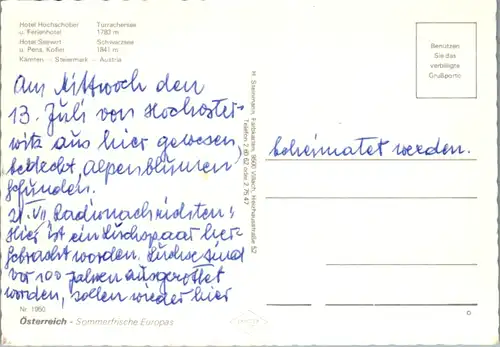 Hotel Hochschober Turrachersee
u. Ferienhotel 1763 m
Hotel Seewirt Schwarzsee
u. Pens. Kofler 1841 m
Kärnten - Steiermark - Austria
Am Mittwoch den
13. Juli von Hochoster-
witz aus hier gewesen,
bedeckt, Alpenblumen
gefunden.
21. VII Radionachrichten:
Hier ist ein Luchspaar her-
gebracht worden. Luchse sind
vor 100 Jahren ausgerottet
worden, sollen wieder hier
Nr. 1950
Österreich - Sommerfrische Europas
H. Steinhheim, Farbkarten, 9500 Villach, Meichausstraße 52
Telefon 2 60 62 oder 2 75 47
Benützen
Sie das
verbilligte
Grußporto
beheimatet werden.